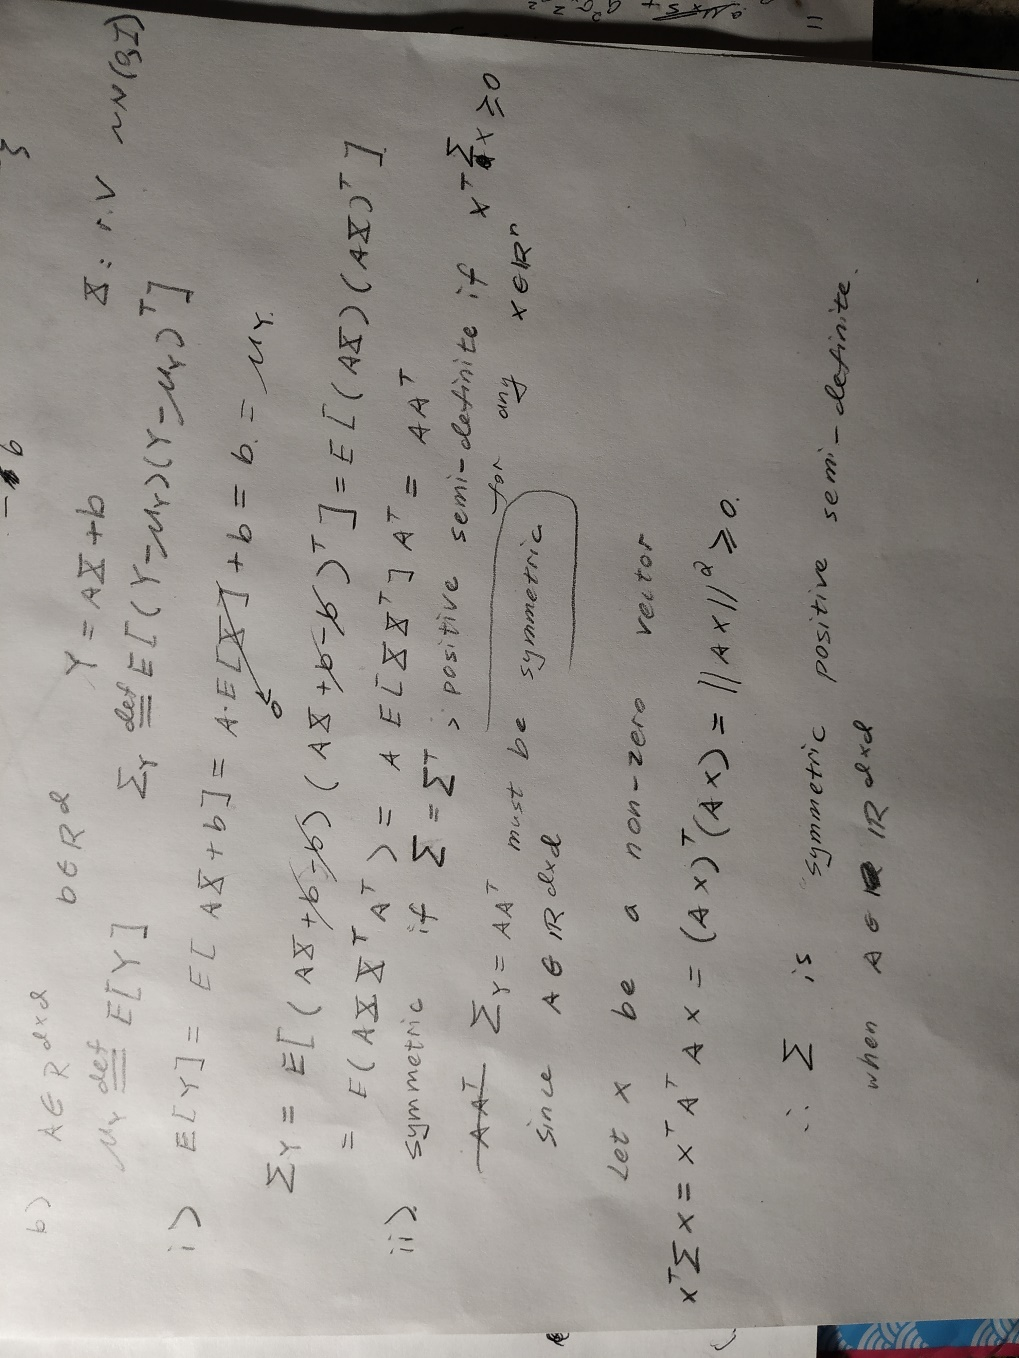 b) A∈R^{d×d} b∈R^d Y = AX+b X: r.V ~N(0,I)
μ_Y \overset{def}{=} E[Y] Σ_Y \overset{def}{=} E[(Y-μ_Y)(Y-μ_Y)^T]
i) E[Y] = E[AX+b] = A·E[X]+b = b. = μ_Y.
0
Σ_Y = E[(AX+b-b)(AX+b-b)^T] = E[(AX)(AX)^T]
= E(AXX^TA^T) = A E[XX^T] A^T = AA^T
ii) symmetric if Σ = Σ^T ; positive semi-definite if x^TΣx ≥0
for any x∈R^n
AA^T Σ_Y = AA^T must be symmetric
since A∈R^{d×d}
Let x be a non-zero vector
x^TΣx = x^TA^TAx = (Ax)^T(Ax) = ||Ax||^2 ≥ 0.
∴ Σ is symmetric positive semi-definite.
when A∈R^{d×d}